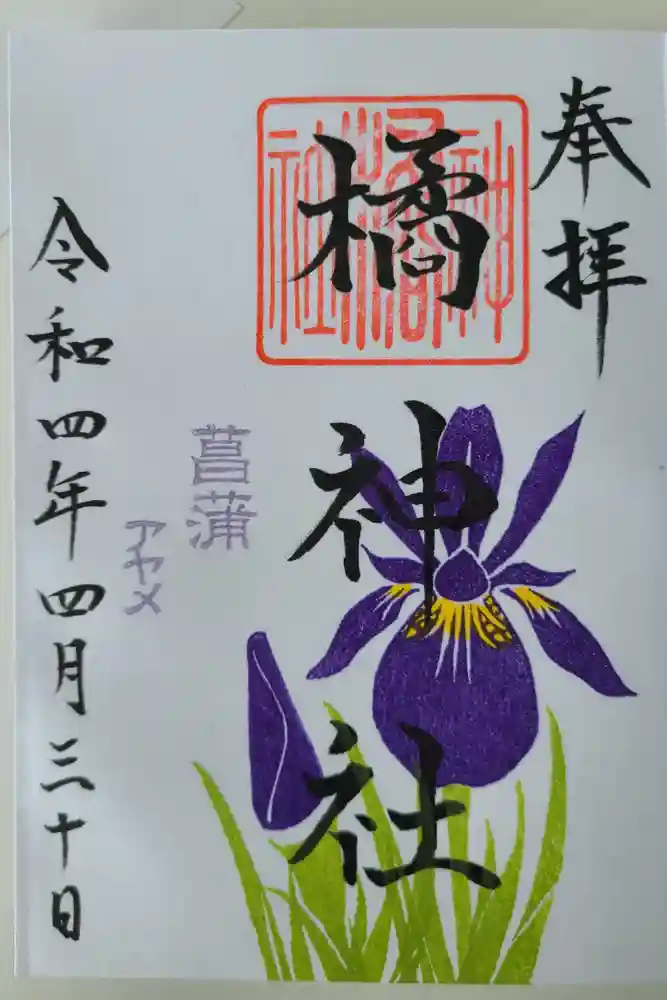 奉拝
橘神社
菖蒲
アヤメ
令和四年四月三十日